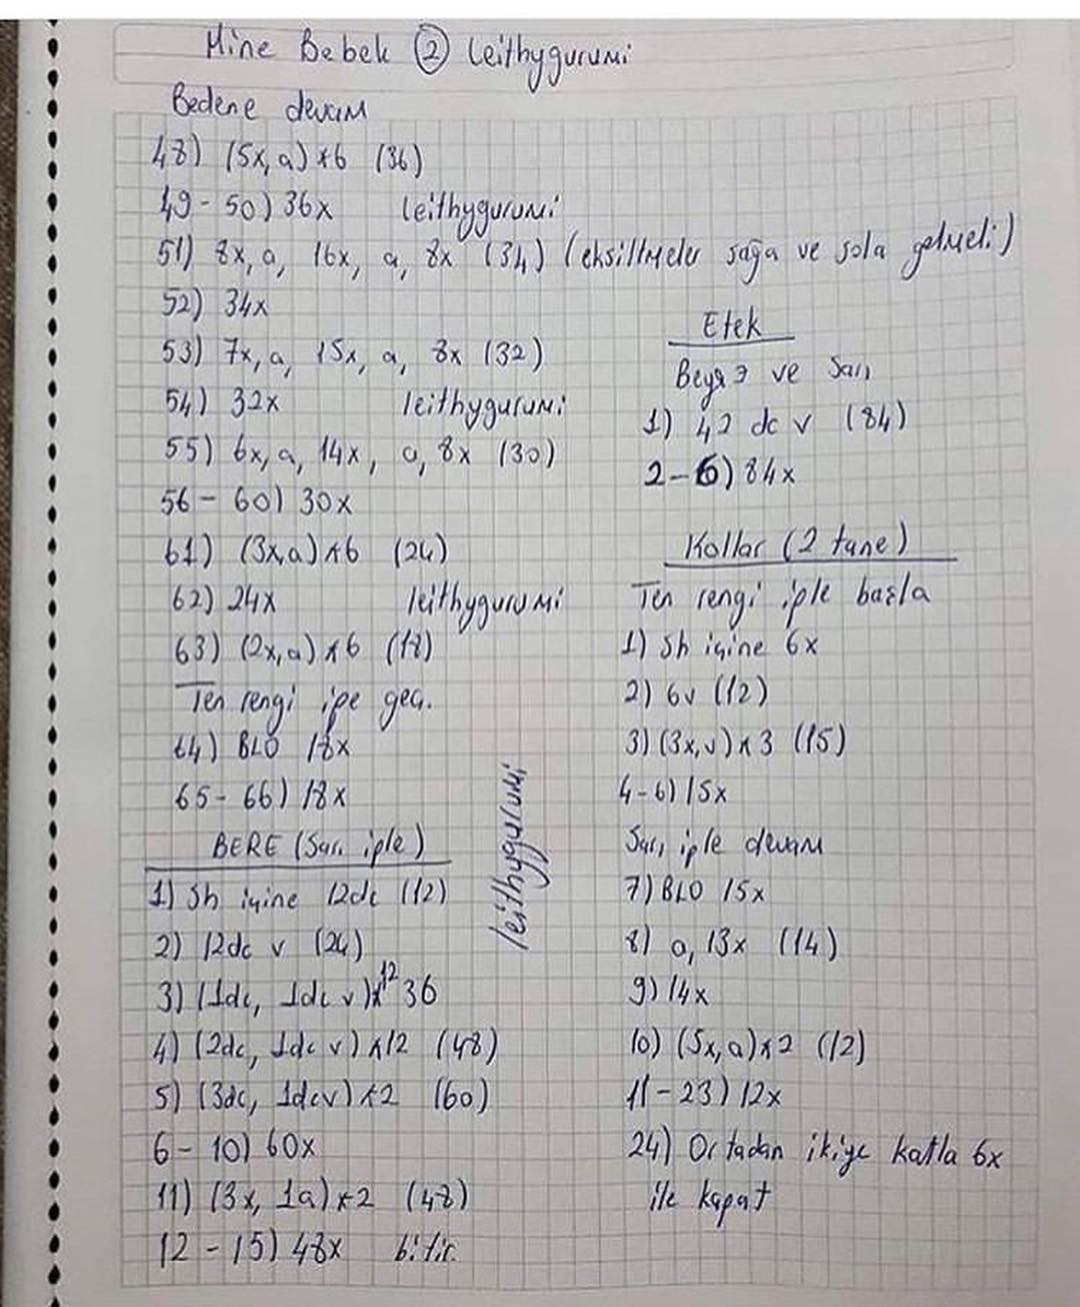 Mine Bebek ② leithygurumi
Bedene devam
48) (5x, a) x6 (36)
49 - 50) 36x leithygurumi
51) 8x, a, 16x, a, 8x (34) (eksiltmeler sağa ve sola gelmeli)
52) 34x
53) 7x, a, 15x, a, 8x (32)
54) 32x leithygurumi
55) 6x, a, 14x, a, 8x (30)
56 - 60) 30x
61) (3x, a) x6 (24)
62) 24x leithygurumi
63) (2x, a) x6 (18)
Ten rengi ipe geç.
64) BLO 18x
65 - 66) 18x
BERE (Sarı iple)
1) Sh içine 12dc (12)
2) 12dc v (24)
3) (1dc, 1dc v)x12 36
4) (2dc, 1dc v) x12 (48)
5) (3dc, 1dcv) x2 (60)
6 - 10) 60x
11) (3x, 1a) x2 (48)
12 - 15) 48x bitir.
leithygurumi
Etek
Beyaz ve Sarı
1) 42 dc v (84)
2-6) 84x
Kollar (2 tane)
Ten rengi iple başla
1) Sh içine 6x
2) 6v (12)
3) (3x, v) x 3 (15)
4-6) 15x
Sarı iple devam
7) BLO 15x
8) a, 13x (14)
9) 14x
10) (5x, a) x 2 (12)
11 - 23) 12x
24) Ortadan ikiye katla 6x
ile kapat